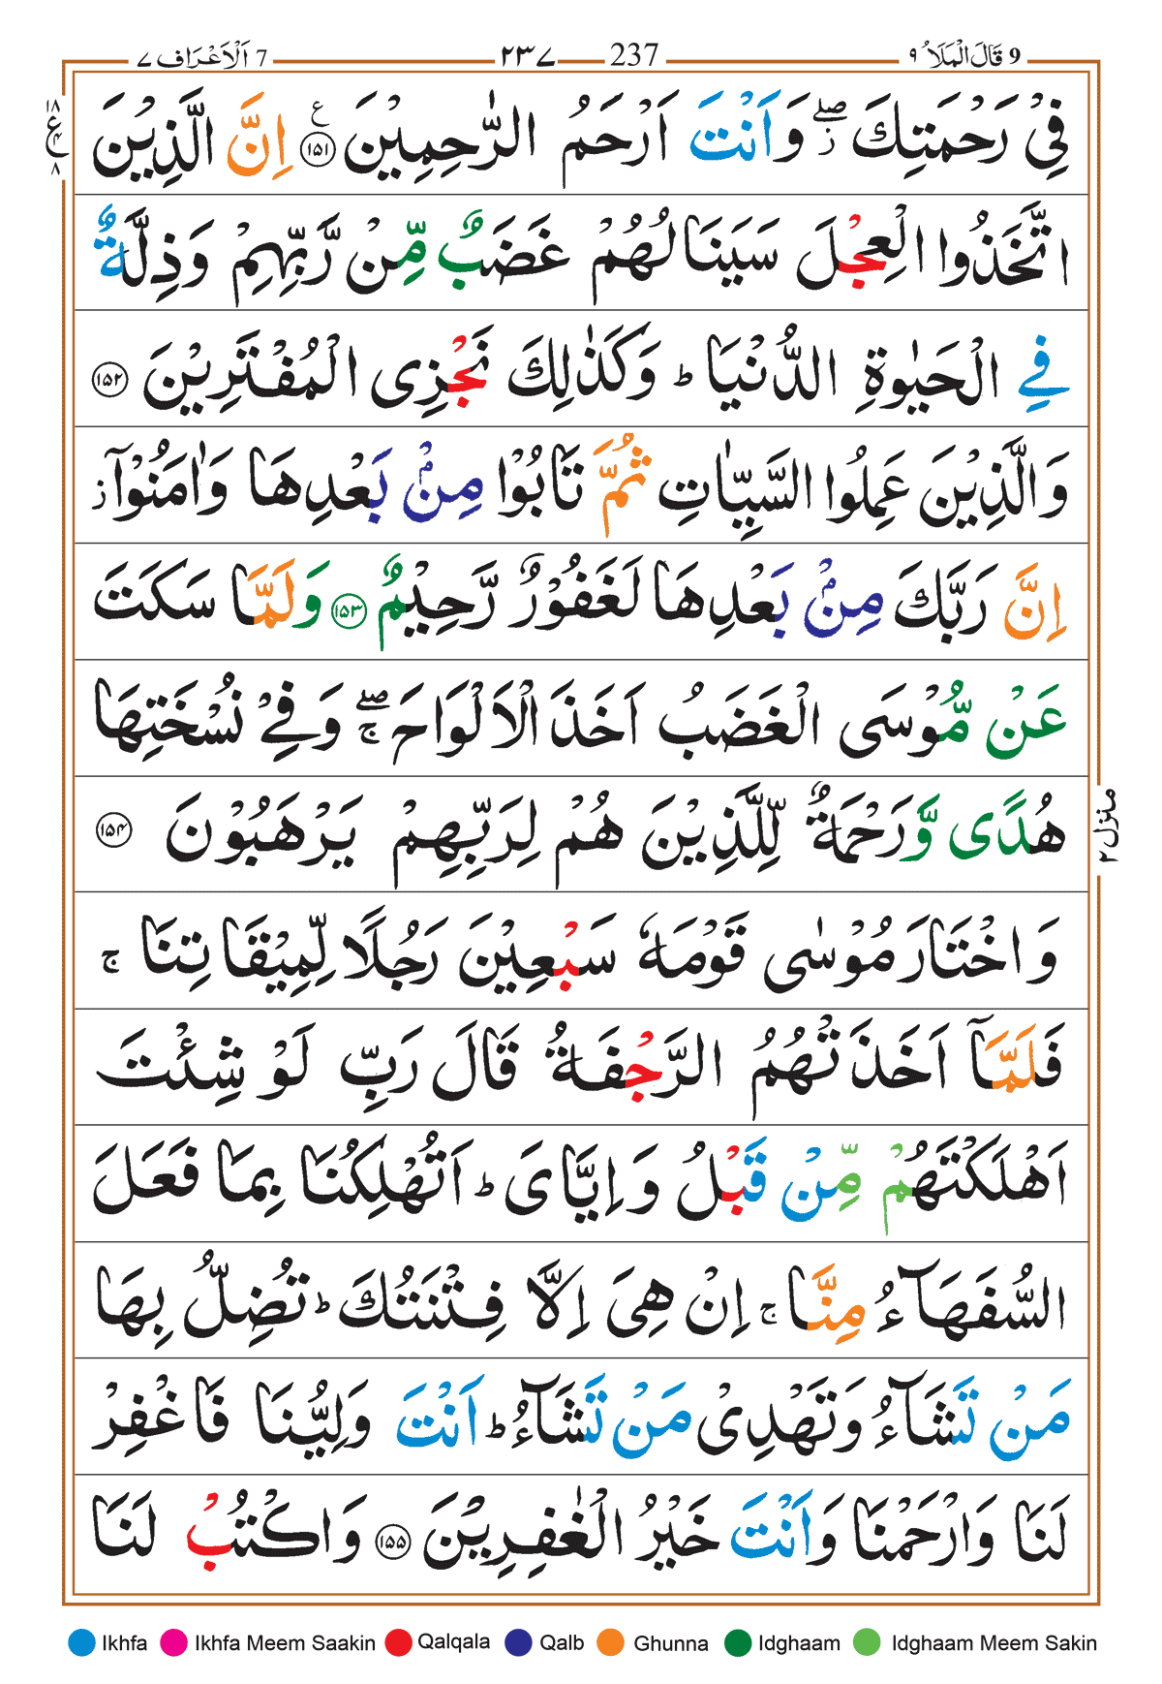 7 اَلْاَعْرَاف ٧ ٢٣٧ 237 9 قَالَ الْمَلَاُ ٩
فِيْ رَحْمَتِكَ ۖ ز وَاَنْتَ اَرْحَمُ الرّٰحِمِيْنَ ع ١٥١ اِنَّ الَّذِيْنَ
اتَّخَذُوا الْعِجْلَ سَيَنَالُهُمْ غَضَبٌ مِّنْ رَّبِّهِمْ وَذِلَّةٌ
فِي الْحَيٰوةِ الدُّنْيَا ؕ وَكَذٰلِكَ نَجْزِى الْمُفْتَرِيْنَ ١٥٢
وَالَّذِيْنَ عَمِلُوا السَّيِّاٰتِ ثُمَّ تَابُوْا مِنْۢ بَعْدِهَا وَاٰمَنُوْٓا ز
اِنَّ رَبَّكَ مِنْۢ بَعْدِهَا لَغَفُوْرٌ رَّحِيْمٌ ١٥٣ وَلَمَّا سَكَتَ
عَنْ مُّوْسَى الْغَضَبُ اَخَذَ الْاَلْوَاحَ ۖ ج وَفِيْ نُسْخَتِهَا
هُدًى وَّرَحْمَةٌ لِّلَّذِيْنَ هُمْ لِرَبِّهِمْ يَرْهَبُوْنَ ١٥٤
وَاخْتَارَ مُوْسٰى قَوْمَهٗ سَبْعِيْنَ رَجُلًا لِّمِيْقَاتِنَا ج
فَلَمَّآ اَخَذَتْهُمُ الرَّجْفَةُ قَالَ رَبِّ لَوْ شِئْتَ
اَهْلَكْتَهُمْ مِّنْ قَبْلُ وَاِيَّايَ ؕ اَتُهْلِكُنَا بِمَا فَعَلَ
السُّفَهَآءُ مِنَّا ج اِنْ هِيَ اِلَّا فِتْنَتُكَ ؕ تُضِلُّ بِهَا
مَنْ تَشَآءُ وَتَهْدِيْ مَنْ تَشَآءُ ؕ اَنْتَ وَلِيُّنَا فَاغْفِرْ
لَنَا وَارْحَمْنَا وَاَنْتَ خَيْرُ الْغٰفِرِيْنَ ١٥٥ وَاكْتُبْ لَنَا
١٨ ع ٤ ٨
منزل ٢
Ikhfa Ikhfa Meem Saakin Qalqala Qalb Ghunna Idghaam Idghaam Meem Sakin